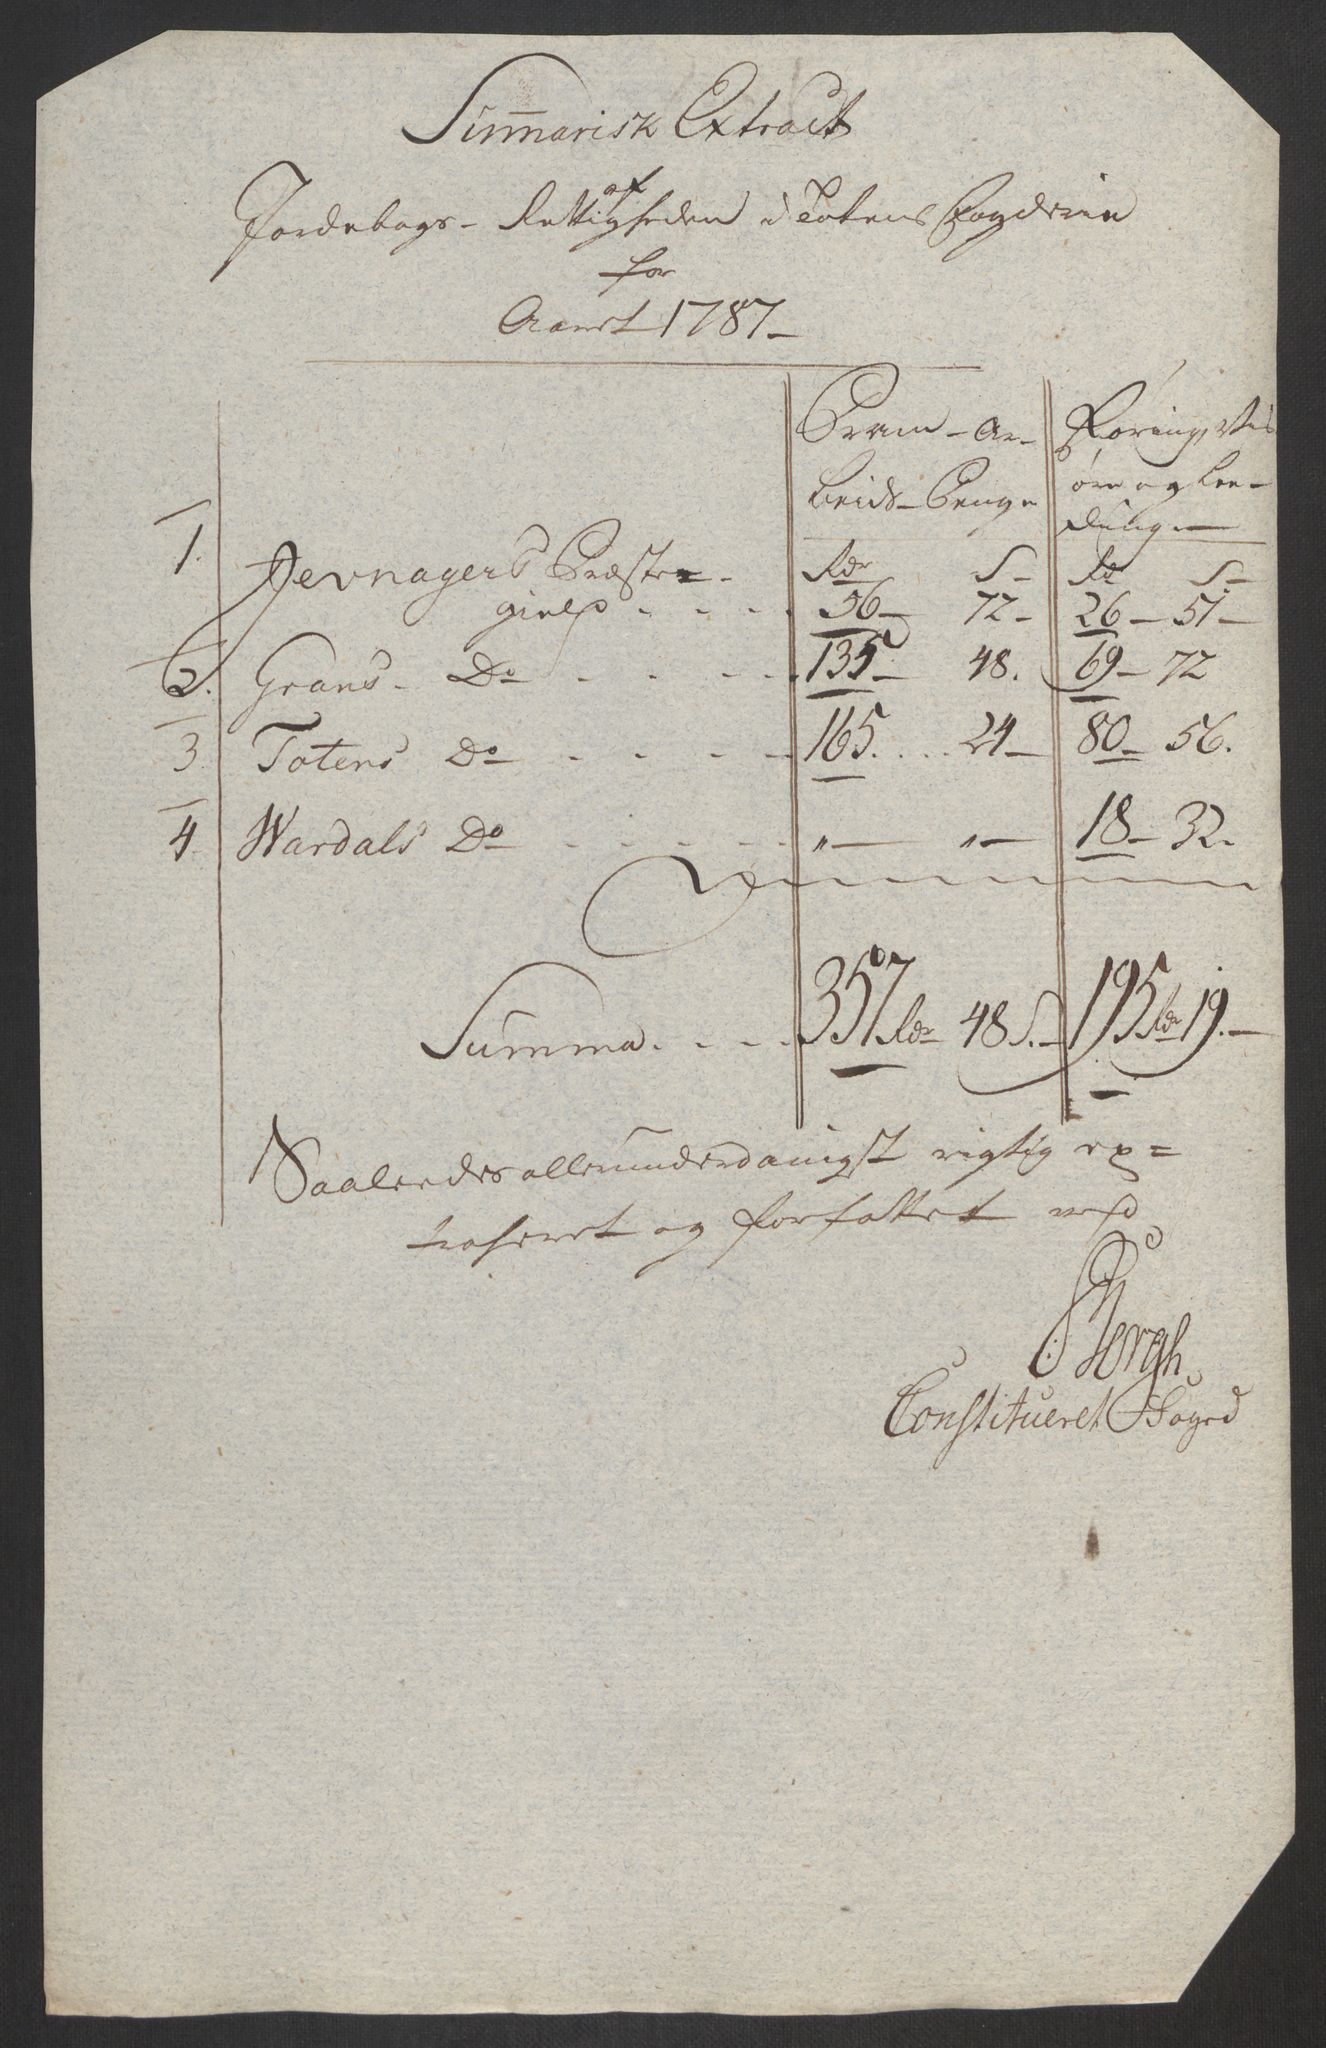 Sum̅arisk Extract
af
Jordebogs-Rettigheden i Totens Fogderie
for
Aaret 1787-
Pram-Ar-
beids-Penge
Foring, Vis
øre og Lee-
dinge
Rdr S Rd S
1. Jevnagers Præste-
gield . . . . 56- 72- 26- 51-
2. Grans- Do . . . . 135- 48. 69- 72
3 Totens Do . . . . 165. . . 24- 80- 56.
4. Wardals Do . . . . „- „- 18- 32.
Summa. . . . 357 Rdr 48 S.- 195 Rdr 19.-
Saaledes allerunderdanigst rigtig ex=
traheret og forfattet ved
Borgh
Constitueret Foged